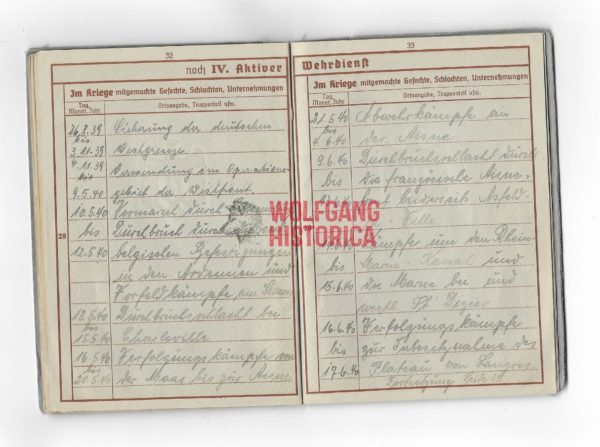 32
noch IV. Aktiver
Im Kriege mitgemachte Gefechte, Schlachten, Unternehmungen
Tag, Monat, Jahr
Ortsangabe, Truppenteil usw.
26.8.39 Sicherung der deutschen
bis
3.11.39 Westgrenze
4.11.39 Verwendung im Operations-
bis
9.5.40 gebiet der Westfront.
10.5.40 Vormarsch durch
bis Durchbruch durch
28
12.5.40 belgischen Befestigungen
in den Ardennen und
Vorfeldkämpfe am Semois
13.5.40 Durchbruchsschlacht bei
bis
15.5.40 Charleville
16.5.40 Verfolgungskämpfe von
bis
20.5.40 der Maas bis zur Aisne
33
Wehrdienst
Im Kriege mitgemachte Gefechte, Schlachten, Unternehmungen
Tag, Monat, Jahr
Ortsangabe, Truppenteil usw.
21.5.40 Abwehrkämpfe an
bis
4.6.40 der Aisne.
9.6.40 Durchbruchsschlacht durch
bis die französische Aisne-
front beiderseits Asfeld-
Ville
Kämpfe um den Rhein-
bis Marne-Kanal und
15.6.40 die Marne bei und
westl. St. Dizier
16.6.40 Verfolgungskämpfe
bis zur Inbesitznahme des
17.6.40 Plateau von Langres
Fortsetzung Seite
WOLFGANG
HISTORICA